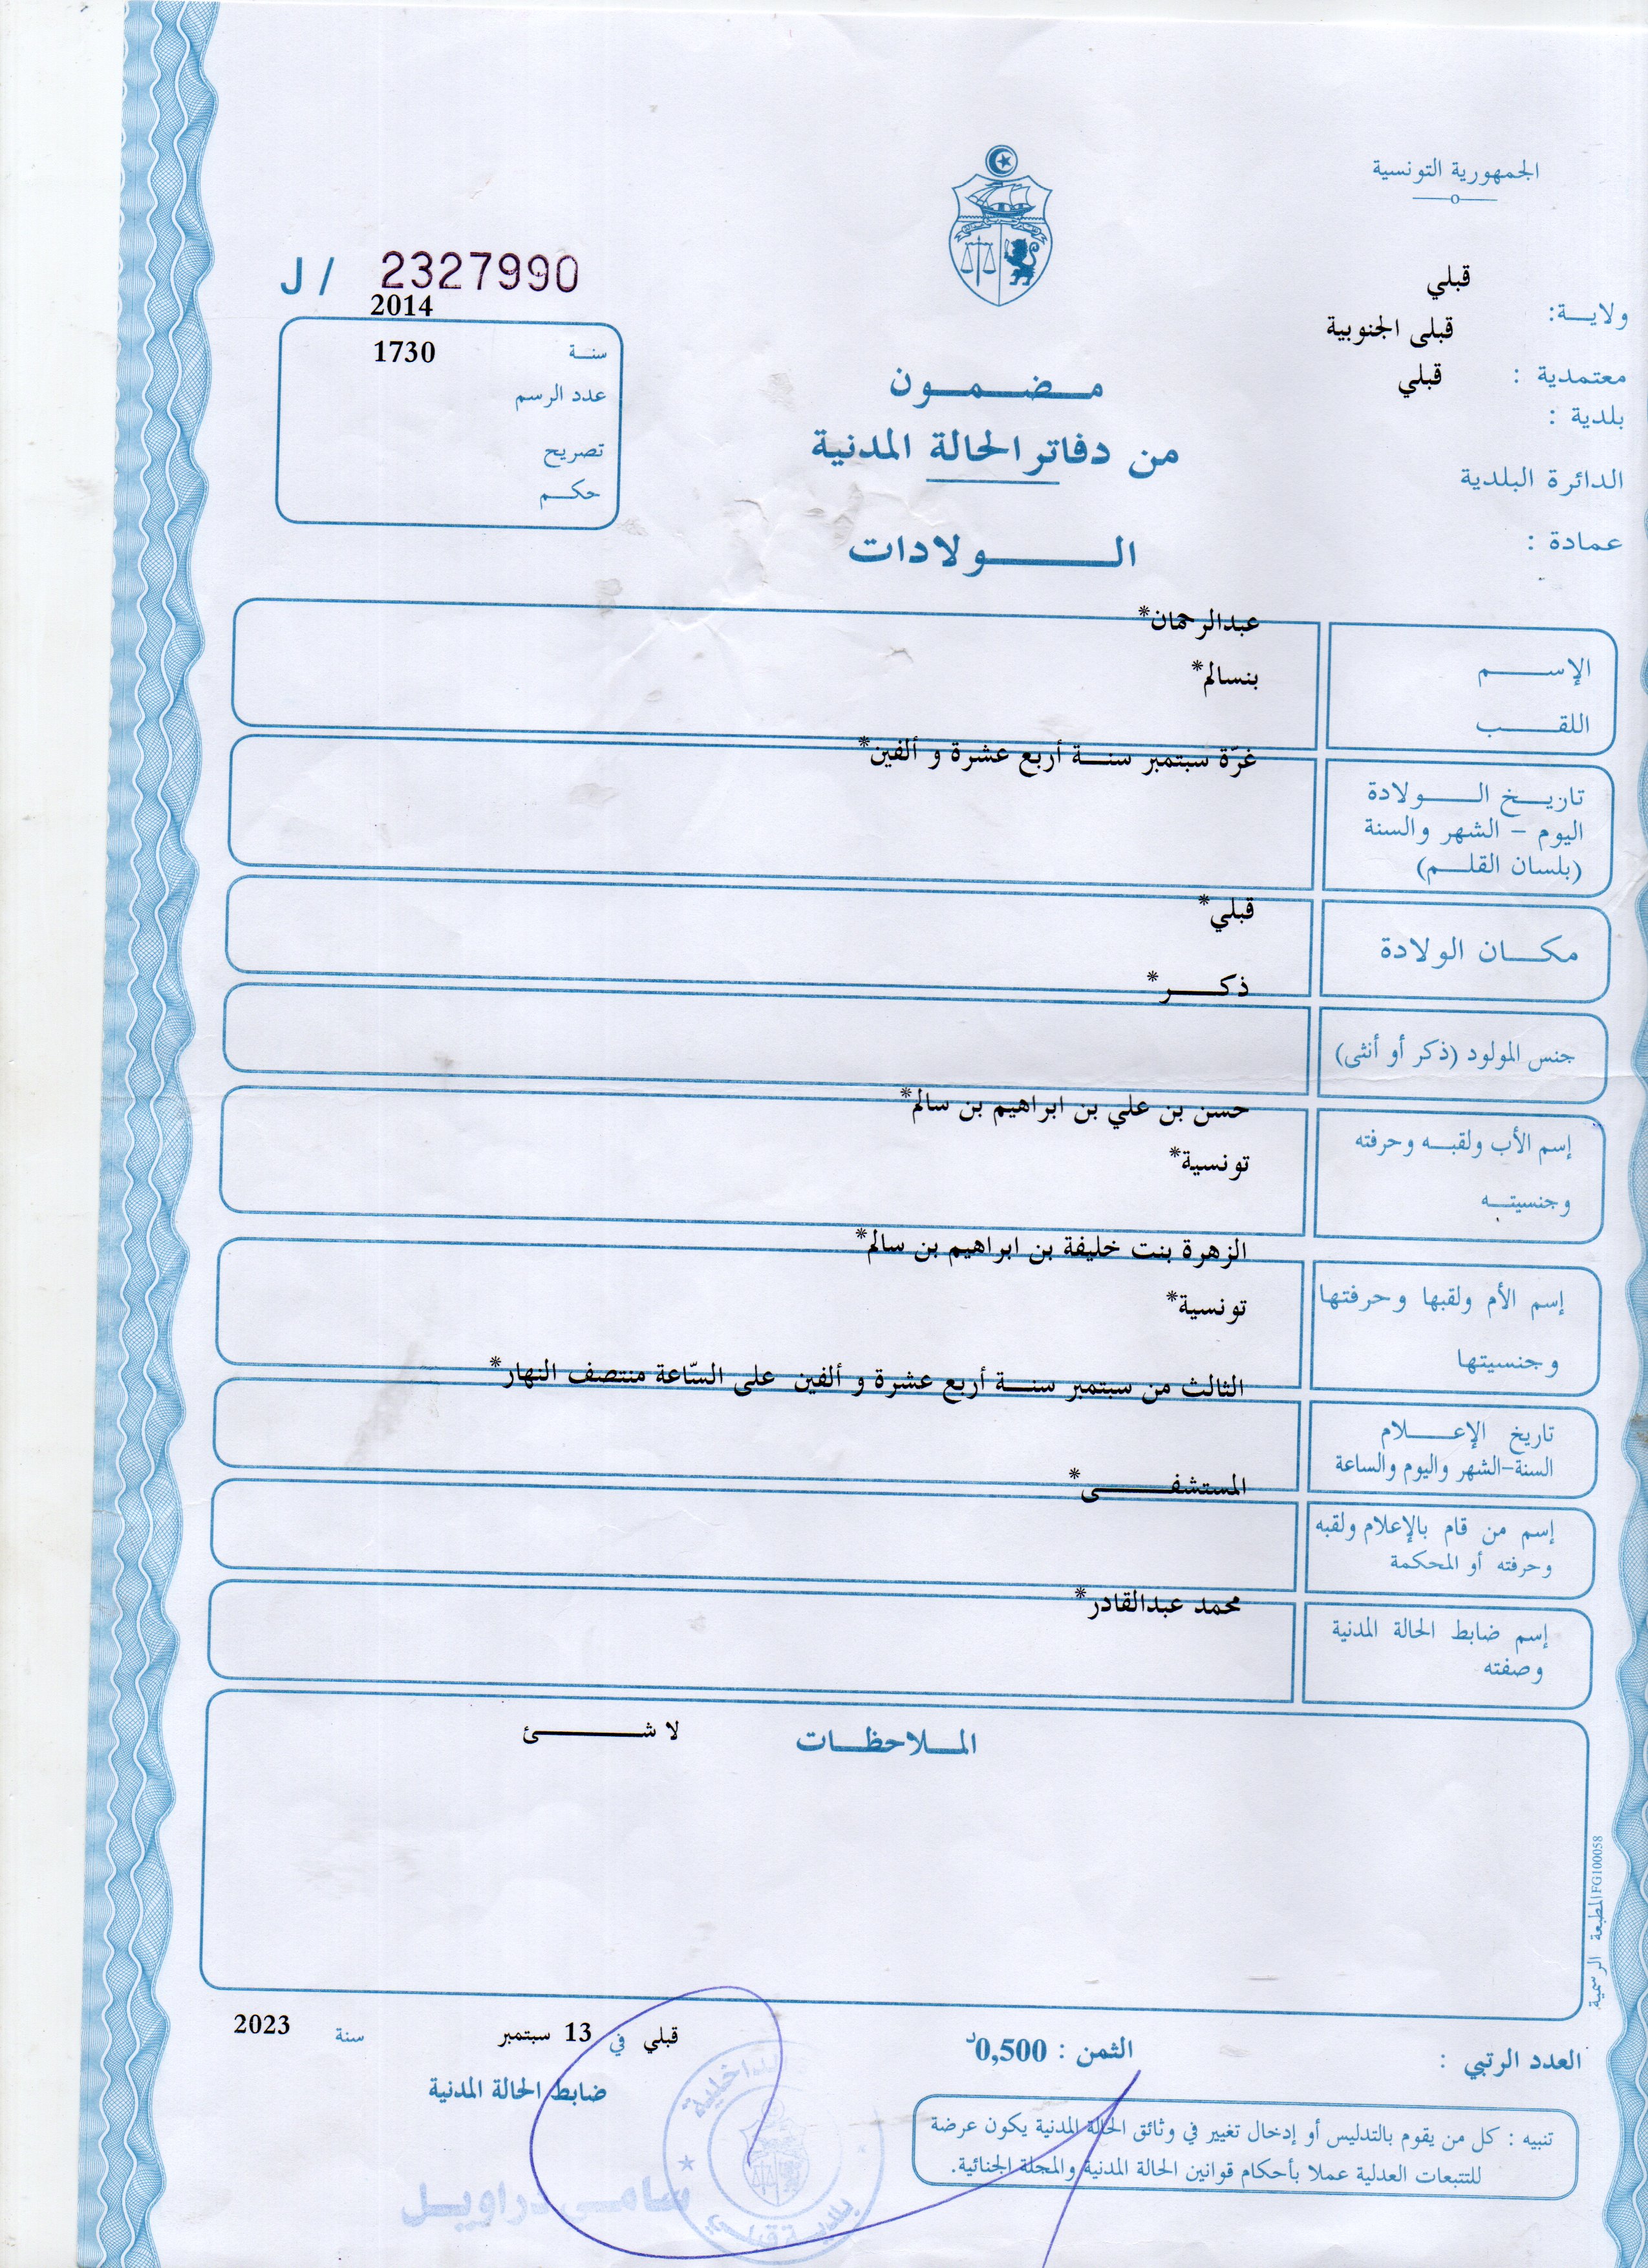 الجمهورية التونسية
قبلي
ولايـــة:
قبلى الجنوبية
قبلي
معتمدية :
بلدية :
الدائرة البلدية
عمادة :
J / 2327990
2014
سنــة
1730
عدد الرسم
تصريح
حكــم
مــضــمــون
من دفاتر الحالة المدنية
الــــولادات
عبدالرحمان*
الإســـــم
بنسالم*
اللقـــب
غرّة سبتمبر سنــة أربع عشرة و ألفين*
تاريـخ الـــولادة
اليوم – الشهر والسنة
(بلسان القلــم)
قبلي*
مكــان الولادة
ذكـــر*
جنس المولود (ذكر أو أنثى)
حسن بن علي بن ابراهيم بن سالم*
إسم الأب ولقبــه وحرفته
تونسية*
وجنسيتــه
الزهرة بنت خليفة بن ابراهيم بن سالم*
إسم الأم ولقبها وحرفتها
تونسية*
وجنسيتها
الثالث من سبتمبر سنــة أربع عشرة و ألفين على السّاعة منتصف النهار*
تاريخ الإعـــلام
السنة–الشهر واليوم والساعة
المستشفـــــى*
إسم من قام بالإعلام ولقبه
وحرفته أو المحكمة
محمد عبدالقادر*
إسم ضابط الحالة المدنية
وصفته
المــلاحظــات
لا شـــــئ
المطبعة الرسمية FG100058
قبلي في 13 سبتمبر سنة 2023
ضابط الحالة المدنية
العدد الرتبي :
الثمن : 0,500د
تنبيه : كل من يقوم بالتدليس أو إدخال تغيير في وثائق الحالة المدنية يكون عرضة
للتتبعات العدلية عملا بأحكام قوانين الحالة المدنية والمجلة الجنائية.
الداخلية
بلدية قبلي
سامي دراويل